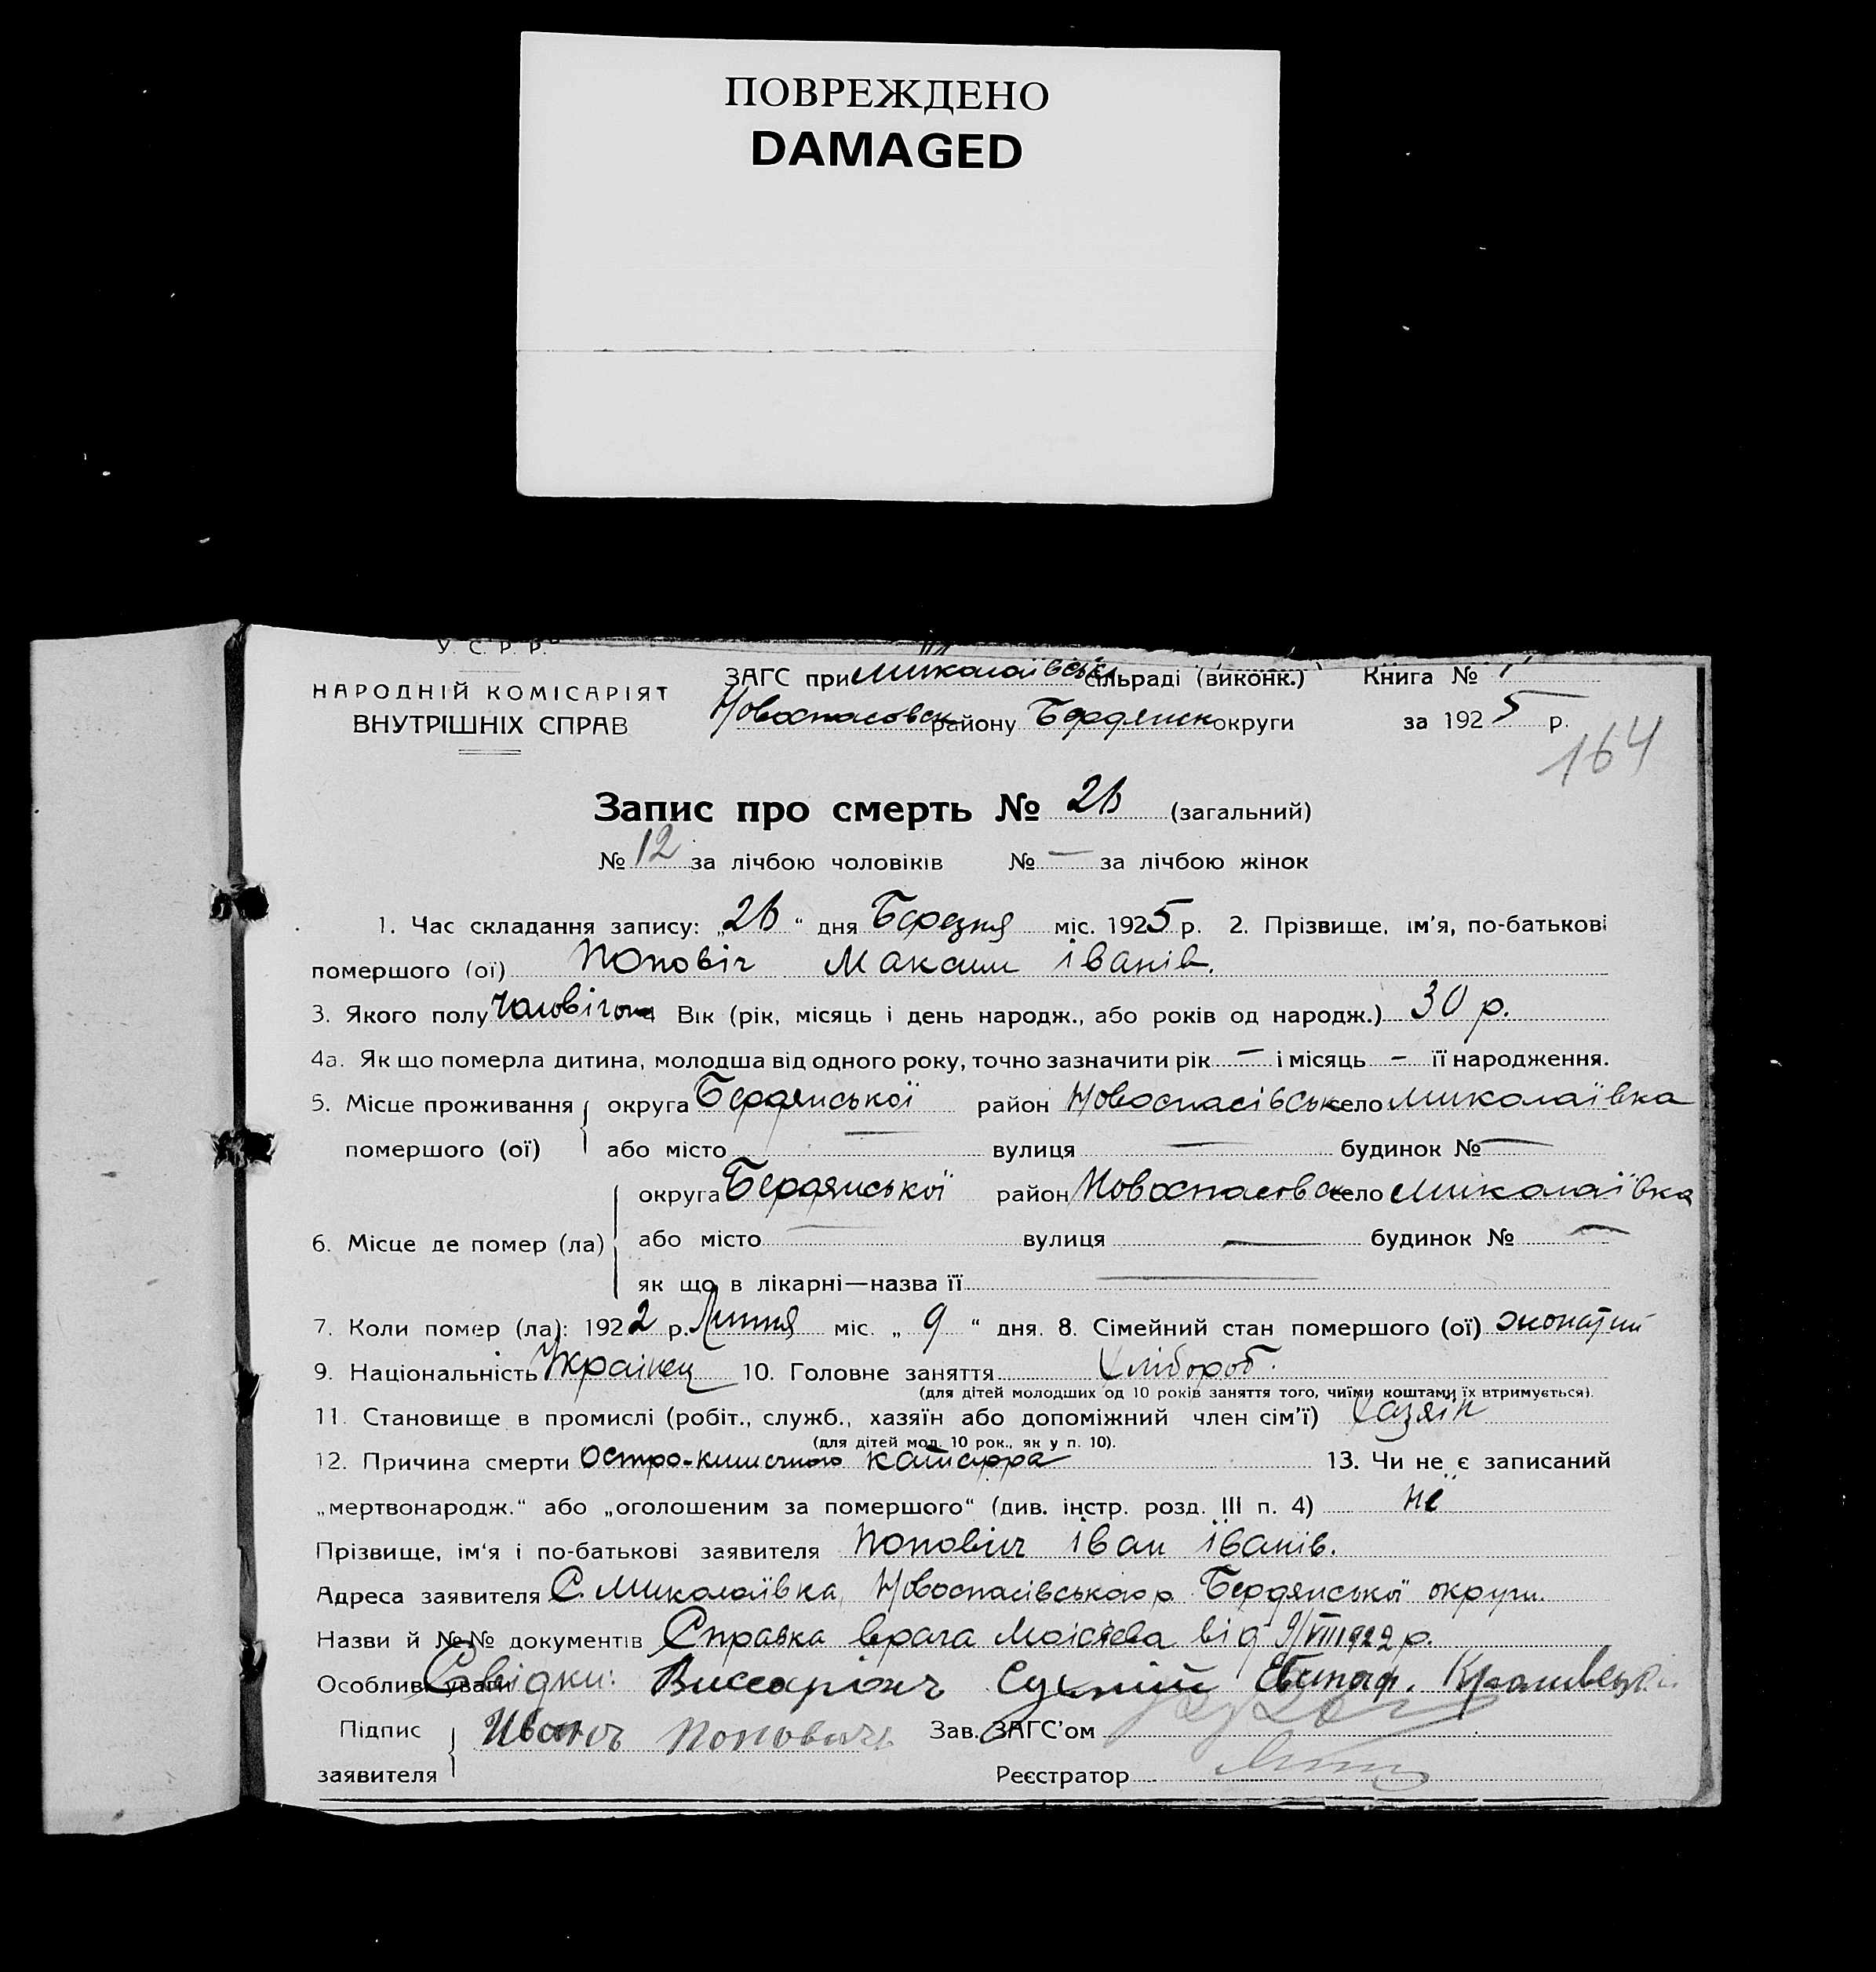 ПОВРЕЖДЕНО
DAMAGED
У. С. Р. Р.
НАРОДНІЙ КОМІСАРІЯТ
ВНУТРІШНІХ СПРАВ
ЗАГС при Миколаївськ сільраді (виконк.) Книга № 1
Новоспасовск району Бердянск округи за 1925 р.
164
Запис про смерть № 2 (загальний)
№ 12 за лічбою чоловіків № — за лічбою жінок
1. Час складання запису: „2 “ дня Березня міс. 1925 р. 2. Прізвище, ім'я, по-батькові
помершого (ої) Поповіч Максим іванів.
3. Якого полу 4 Вік (рік, місяць і день народж., або років од народж.) 30 р.
4а. Як що померла дитина, молодша від одного року, точно зазначити рік — і місяць — її народження.
5. Місце проживання помершого (ої) округа Бердянської район Новоспасівськ село Миколаївка
або місто — вулиця — будинок № —
6. Місце де помер (ла) округа Бердянської район Новоспасовск село Миколаївка
або місто — вулиця — будинок № —
як що в лікарні—назва її —
7. Коли помер (ла): 1922 р. Липня міс. „ 9 “ дня. 8. Сімейний стан помершого (ої) жонатий
9. Національність Украінец 10. Головне заняття Хлібороб.
(для дітей молодших од 10 років заняття того, чиїми коштами їх втримується).
11. Становище в промислі (робіт., служб., хазяїн або допоміжний член сім'ї) Хазяїн
(для дітей мол. 10 рок., як у п. 10).
12. Причина смерти Остро-кишечного катарра 13. Чи не є записаний
„мертвонародж.“ або „оголошеним за помершого“ (див. інстр. розд. III п. 4) нє
Прізвище, ім'я і по-батькові заявителя Попович іван іванів.
Адреса заявителя С. Миколаївка, Новоспасівського р. Бердянської округи.
Назви й №№ документів Справка врача від 9/VIII 1922 р.
Особливі уваги Свідки: Виссаріонъ
Підпис заявителя Иванъ Поповичъ Зав. ЗАГС'ом
Реєстратор